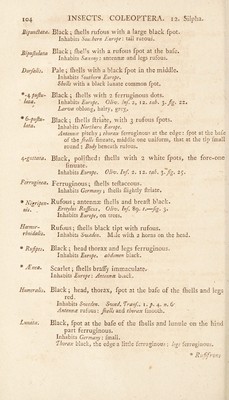 104 INSECTS. COLEOPTERA. 12. Silpha.
Bipunctata. Black; shells rufous with a large black spot.
Inhabits Southern Europe: tail rufous.
Bipustulata Black; shells with a rufous spot at the base.
Inhabits Saxony: antennæ and legs rufous.
Dorsalis. Pale; shells with a black spot in the middle.
Inhabits Southern Europe.
Shells with a black lunate common spot.
*4 pustu- Black; shells with 2 ferruginous dots.
lata. Inhabits Europe. Oliv. Inf. 2, 12. tab. 3. fig. 22.
Larva oblong, hairy, grey.
*6-pustu- Black; shells striate, with 3 rufous spots.
lata. Inhabits Northern Europe.
Antennæ pitchy; thorax ferruginous at the edge: spot at the base
of the shells sinuate, middle one uniform, that at the tip small
round: Body beneath rufous.
4-guttata. Black, polished: shells with 2 white spots, the fore-one
sinuate.
Inhabits Europe. Oliv. Inf. 2. 12. tab. 3. fig. 25.
Ferruginea. Ferruginous; shells testaceous.
Inhabits Germany; shells slightly striate.
* Nigripen- Rufous; antennæ shells and breast black.
nis. Erotylus Rufficus, Oliv. Inf. 89. 1.—fig. 3.
Inhabits Europe, on trees.
Hæmor- Rufous; shells black tipt with rufous.
rhoidalis. Inhabits Sweden. Male with 2 horns on the head.
* Rufipes. Black; head thorax and legs ferruginous.
Inhabits Europe. abdomen black.
* Ænea. Scarlet; shells brassy immaculate.
Inhabits Europe: Antennæ black.
Humeralis. Black; head, thorax, spot at the base of the shells and legs
red.
Inhabits Sweden. Swed. Transf. 1. p. 4. n. 6
Antennæ rufous: shells and thorax smooth.
Lunata. Black, spot at the base of the shells and lunule on the hind
part ferruginous.
Inhabits Germany: small.
Thorax black, the edge a little ferruginous: legs ferruginous.
* Ruffifrons